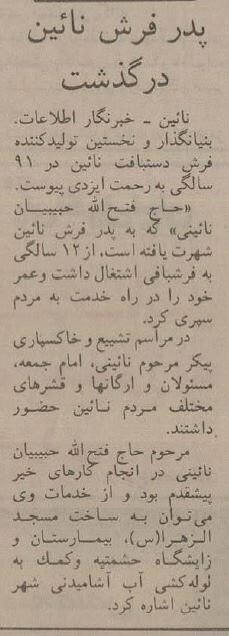 پدر فرش نائین
درگذشت
نائین - خبرنگار اطلاعات.
بنیانگذار و نخستین تولیدکننده
فرش دستبافت نائین در ۹۱
سالگی به رحمت ایزدی پیوست.
«حاج فتح‌الله حبیبیان
نائینی» که به پدر فرش نائین
شهرت یافته است، از ۱۲ سالگی
به فرشبافی اشتغال داشت وعمر
خود را در راه خدمت به مردم
سپری کرد.
در مراسم تشییع و خاکسپاری
پیکر مرحوم نائینی، امام جمعه،
مسئولان و ارگانها و قشرهای
مختلف مردم نائین حضور
داشتند.
مرحوم حاج فتح‌الله حبیبیان
نائینی در انجام کارهای خیر
پیشقدم بود و از خدمات وی
می‌توان به ساخت مسجد
الزهرا(س)، بیمارستان و
زایشگاه حشمتیه وکمک به
لوله‌کشی آب آشامیدنی شهر
نائین اشاره کرد.